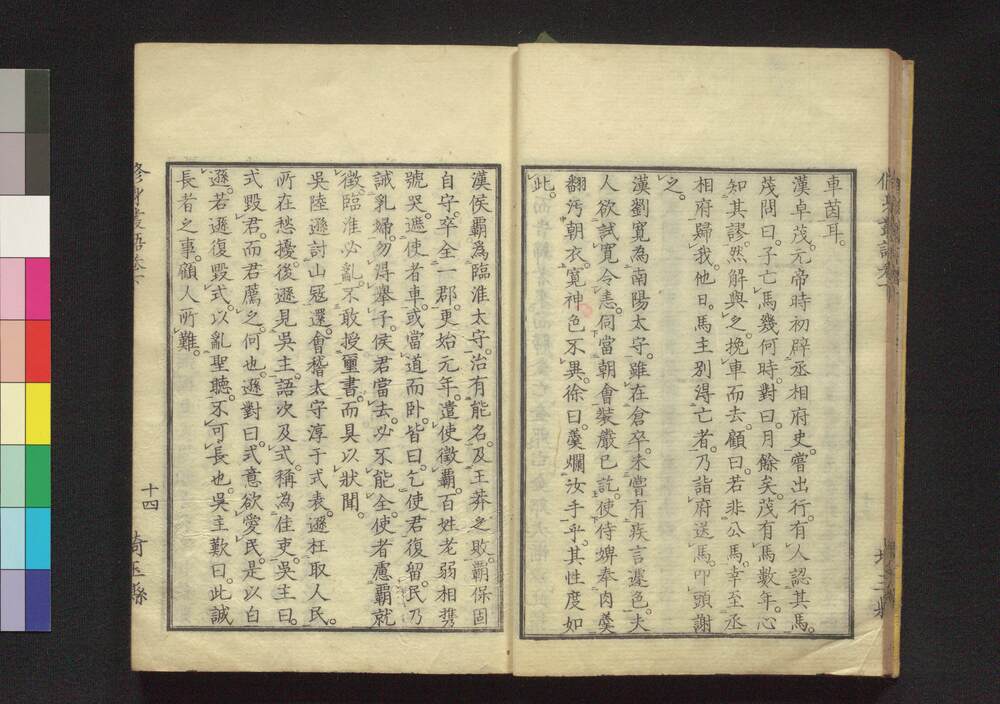 車茵耳。
漢卓茂。元帝時初辟丞相府史。嘗出行。有人認其馬。
茂問曰。子亡馬幾何時。對曰。月餘矣。茂有馬數年。心
知其謬。然解與之。挽車而去。顧曰。若非公馬。幸至丞
相府歸我。他日。馬主別得亡者。乃詣府送馬。叩頭謝
之。
漢劉寬為南陽太守。雖在倉卒。未嘗有疾言遽色。夫
人欲試寬令恚。伺當朝會裝嚴已訖。使侍婢奉肉羹
翻汚朝衣。寬神色不異。徐曰。羹爛汝手乎。其性度如
此。
漢侯霸為臨淮太守。治有能名。及王莽之敗。霸保固
自守。卒全一郡。更始元年。遣使徵霸。百姓老弱相攜
號哭。遮使者車。或當道而臥。皆曰。乞使君復留。民乃
誡乳婦。勿得舉子。侯君當去。必不能全。使者慮霸就
徵。臨淮必亂。不敢授璽書。而具以狀聞。
吳陸遜討山寇還。會稽太守淳于式表。遜枉取人民。
所在愁擾。後遜見吳主。語次及式。稱為佳吏。吳主曰。
式毀君。而君薦之。何也。遜對曰。式意欲愛民。是以白
遜。若遜復毀式。以亂聖聽。不可長也。吳主歎曰。此誠
長者之事。顧人所難。
十四